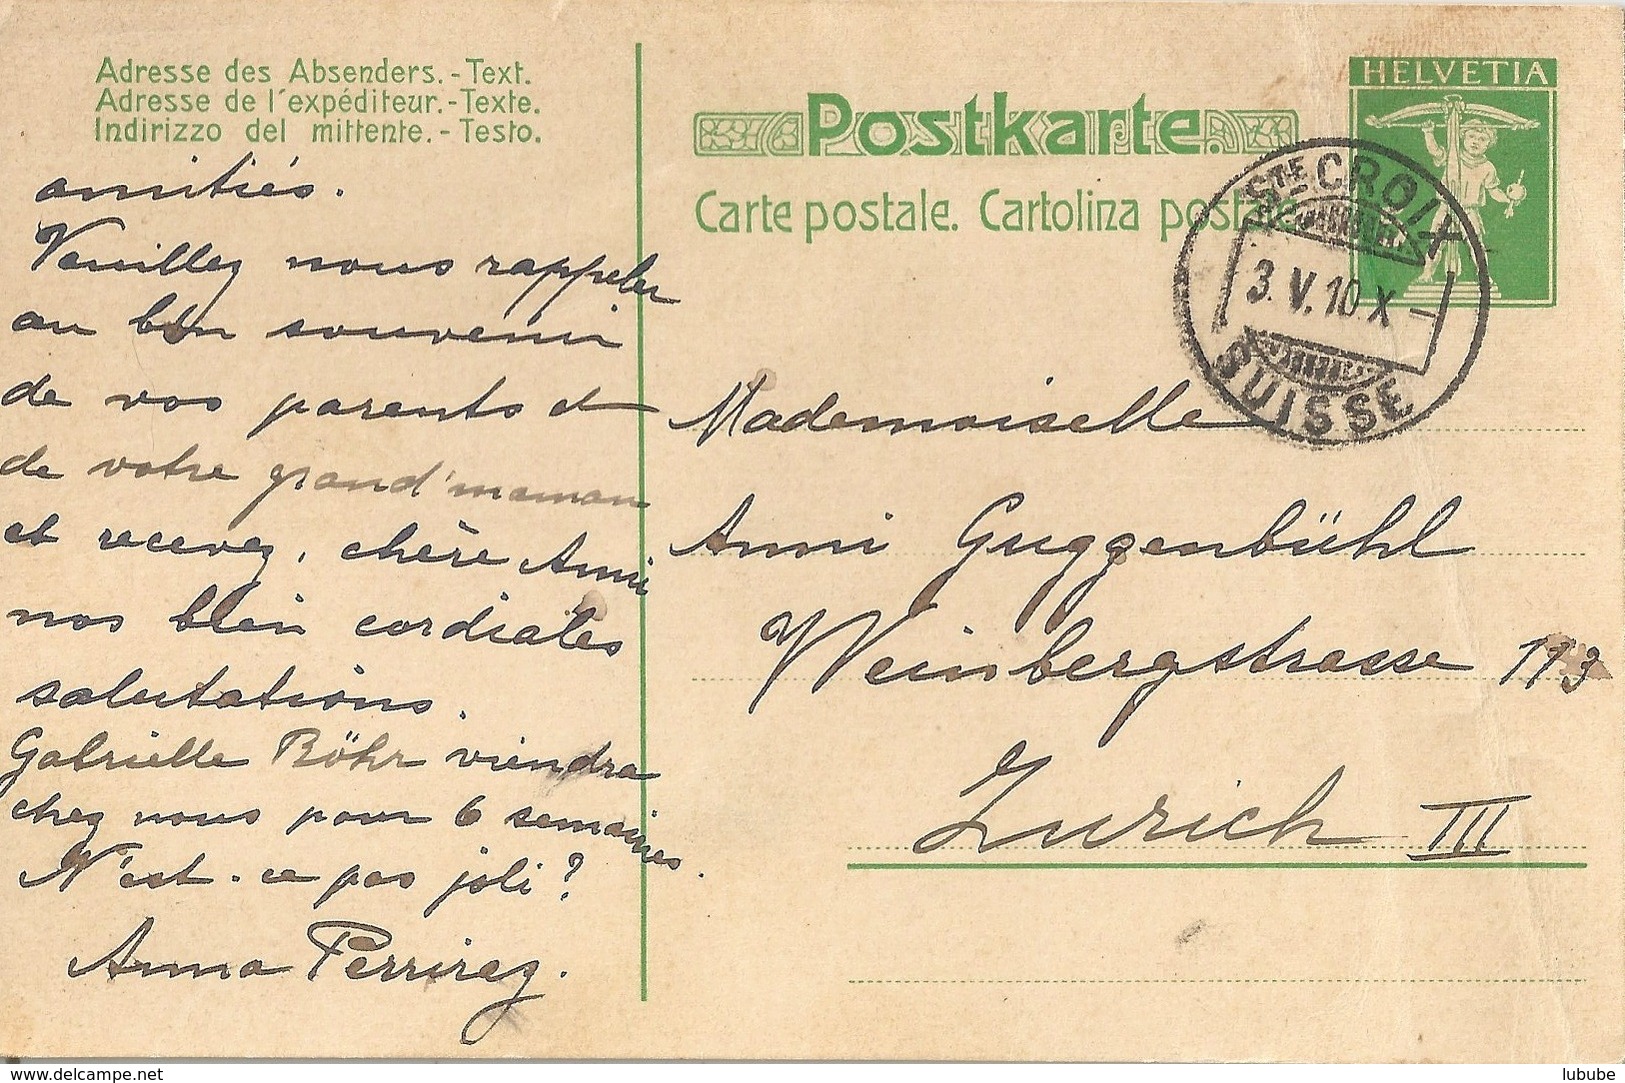 Adresse des Absenders.-Text.
Adresse de l'expéditeur.-Texte.
Indirizzo del mittente.-Testo.
amitiés.
Veuillez nous rappeler
au bon souvenir
de vos parents et
de votre grand'maman
et recevez, chère Anni
nos bien cordiales
salutations.
Gabrielle Röhr viendra
chez nous pour 6 semaines.
N'est-ce pas joli?
Anna Perrirez.
HELVETIA
Postkarte.
Carte postale. Cartolina postale.
STE CROIX
3.V.10.X-
SUISSE
Mademoiselle
Anni Guggenbühl
Weinbergstrasse 113
Zurich III
www.delcampe.net
lubube